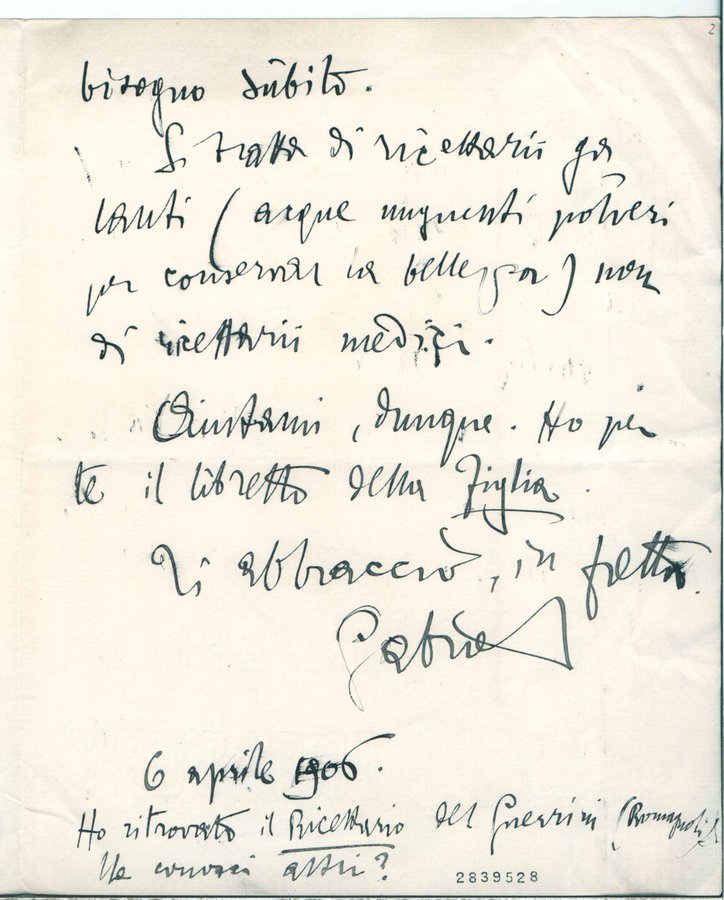 2
bisogno sùbito.
Si tratta di ricettarii ga
lanti (acque unguenti polveri
per conservar la bellezza) non
di ricettarii medici.
Aiutami, dunque. Ho per
te il libretto della Figlia.
Ti abbraccio, in fretta
Gabriel
6 aprile 1906.
Ho ritrovato il Ricettario del Guerrini (Romagnoli)
Ne conosci altri?
2839528